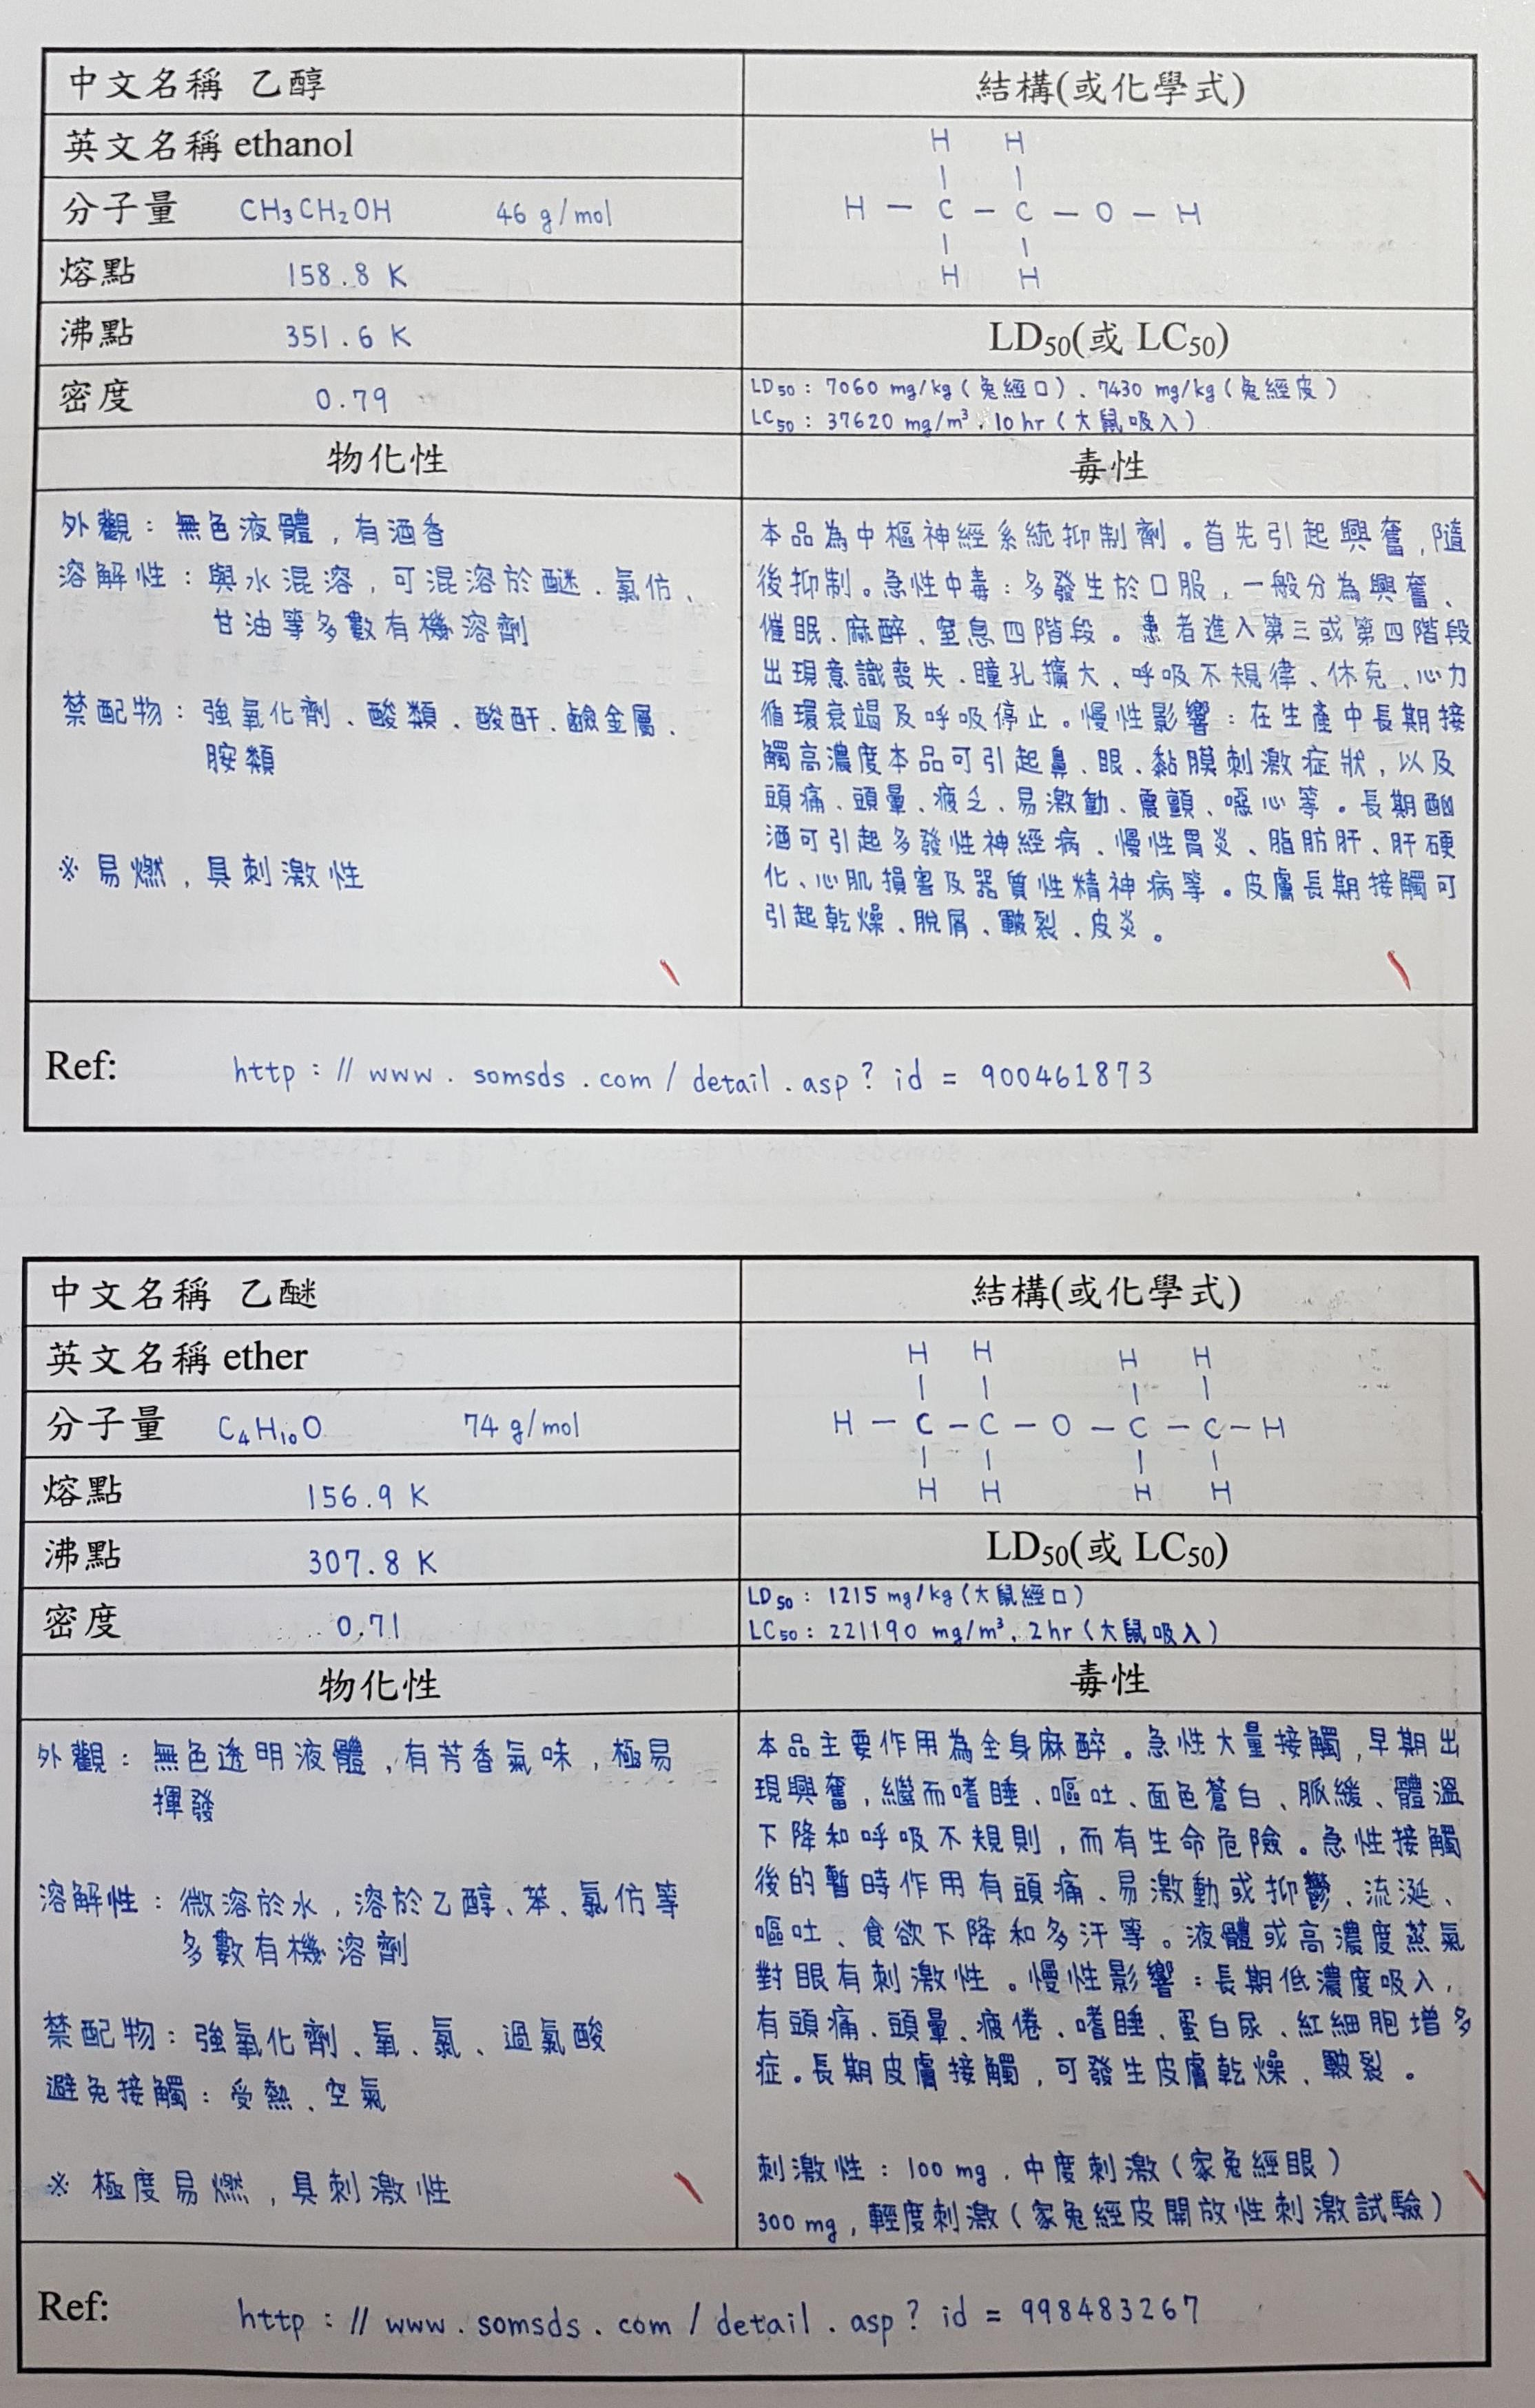 中文名稱 乙醇
結構(或化學式)
英文名稱 ethanol
分子量 CH₃CH₂OH 46 g/mol
熔點 158.8 K
沸點 351.6 K
密度 0.79
H H
H － C － C － O － H
H H
LD₅₀(或 LC₅₀)
LD₅₀：7060 mg/kg（兔經口）、7430 mg/kg（兔經皮）
LC₅₀：37620 mg/m³，10 hr（大鼠吸入）
物化性
外觀：無色液體，有酒香
溶解性：與水混溶，可混溶於醚、氯仿、
甘油等多數有機溶劑
禁配物：強氧化劑、酸類、酸酐、鹼金屬、
胺類
※ 易燃，具刺激性
毒性
本品為中樞神經系統抑制劑。首先引起興奮，隨
後抑制。急性中毒：多發生於口服，一般分為興奮、
催眠、麻醉、窒息四階段。患者進入第三或第四階段
出現意識喪失、瞳孔擴大、呼吸不規律、休克、心力
循環衰竭及呼吸停止。慢性影響：在生產中長期接
觸高濃度本品可引起鼻、眼、黏膜刺激症狀，以及
頭痛、頭暈、疲乏、易激動、震顫、噁心等。長期酗
酒可引起多發性神經病、慢性胃炎、脂肪肝、肝硬
化、心肌損害及器質性精神病等。皮膚長期接觸可
引起乾燥、脫屑、皸裂、皮炎。
Ref: http：// www．somsds．com / detail．asp？id = 900461873
中文名稱 乙醚
結構(或化學式)
英文名稱 ether
分子量 C₄H₁₀O 74 g/mol
熔點 156.9 K
沸點 307.8 K
密度 0.71
H H H H
H － C － C － O － C － C － H
H H H H
LD₅₀(或 LC₅₀)
LD₅₀：1215 mg/kg（大鼠經口）
LC₅₀：221190 mg/m³，2 hr（大鼠吸入）
物化性
外觀：無色透明液體，有芳香氣味，極易
揮發
溶解性：微溶於水，溶於乙醇、苯、氯仿等
多數有機溶劑
禁配物：強氧化劑、氧、氯、過氯酸
避免接觸：受熱、空氣
※ 極度易燃，具刺激性
毒性
本品主要作用為全身麻醉。急性大量接觸，早期出
現興奮，繼而嗜睡、嘔吐、面色蒼白、脈緩、體溫
下降和呼吸不規則，而有生命危險。急性接觸
後的暫時作用有頭痛、易激動或抑鬱、流涎、
嘔吐、食欲下降和多汗等。液體或高濃度蒸氣
對眼有刺激性。慢性影響：長期低濃度吸入，
有頭痛、頭暈、疲倦、嗜睡、蛋白尿、紅細胞增多
症。長期皮膚接觸，可發生皮膚乾燥、皸裂。
刺激性：100 mg，中度刺激（家兔經眼）
300 mg，輕度刺激（家兔經皮開放性刺激試驗）
Ref: http：// www．somsds．com / detail．asp？id = 998483267